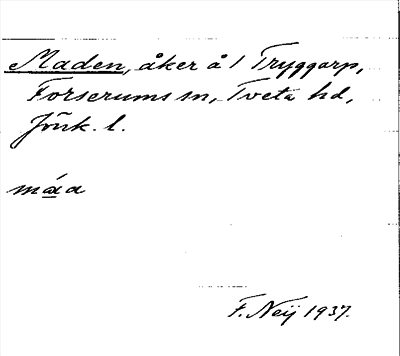 Maden, åker å 1 Tryggarp,
Forserums sn, Tveta hd,
Jönk. l.
máa
F. Neij 1937.